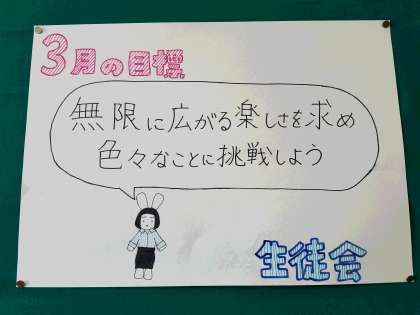 3月の目標
無限に広がる楽しさを求め
色々なことに挑戦しよう
生徒会